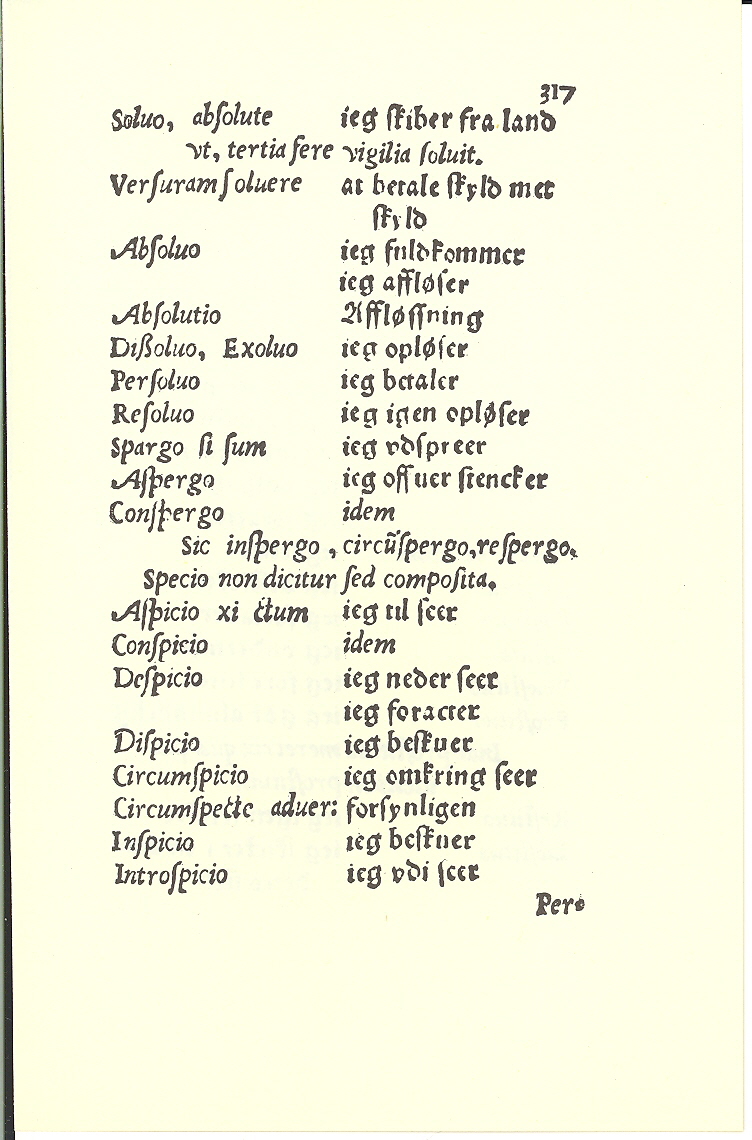 317
Soluo, abſolute ieg ſkiber fra land
vt, tertia fere vigilia ſoluit.
Verſuram ſoluere at betale ſkyld met
ſkyld
Abſoluo ieg fuldkommer
ieg affløſer
Abſolutio Affløſſning
Dißoluo, Exoluo ieg opløſer
Perſoluo ieg betaler
Reſoluo ieg igen opløſer
Spargo ſi ſum ieg vdſpreer
Aſpergo ieg offuer ſtencker
Conſpergo idem
Sic inſpergo, circūſpergo, reſpergo.
Specio non dicitur ſed compoſita.
Aſpicio xi ctum ieg til ſeer
Conſpicio idem
Deſpicio ieg neder ſeer
ieg foracter
Diſpicio ieg beſkuer
Circumſpicio ieg omkring ſeer
Circumſpecte aduer: forſynligen
Inſpicio ieg beſkuer
Introſpicio ieg vdi ſeer
Per⸗